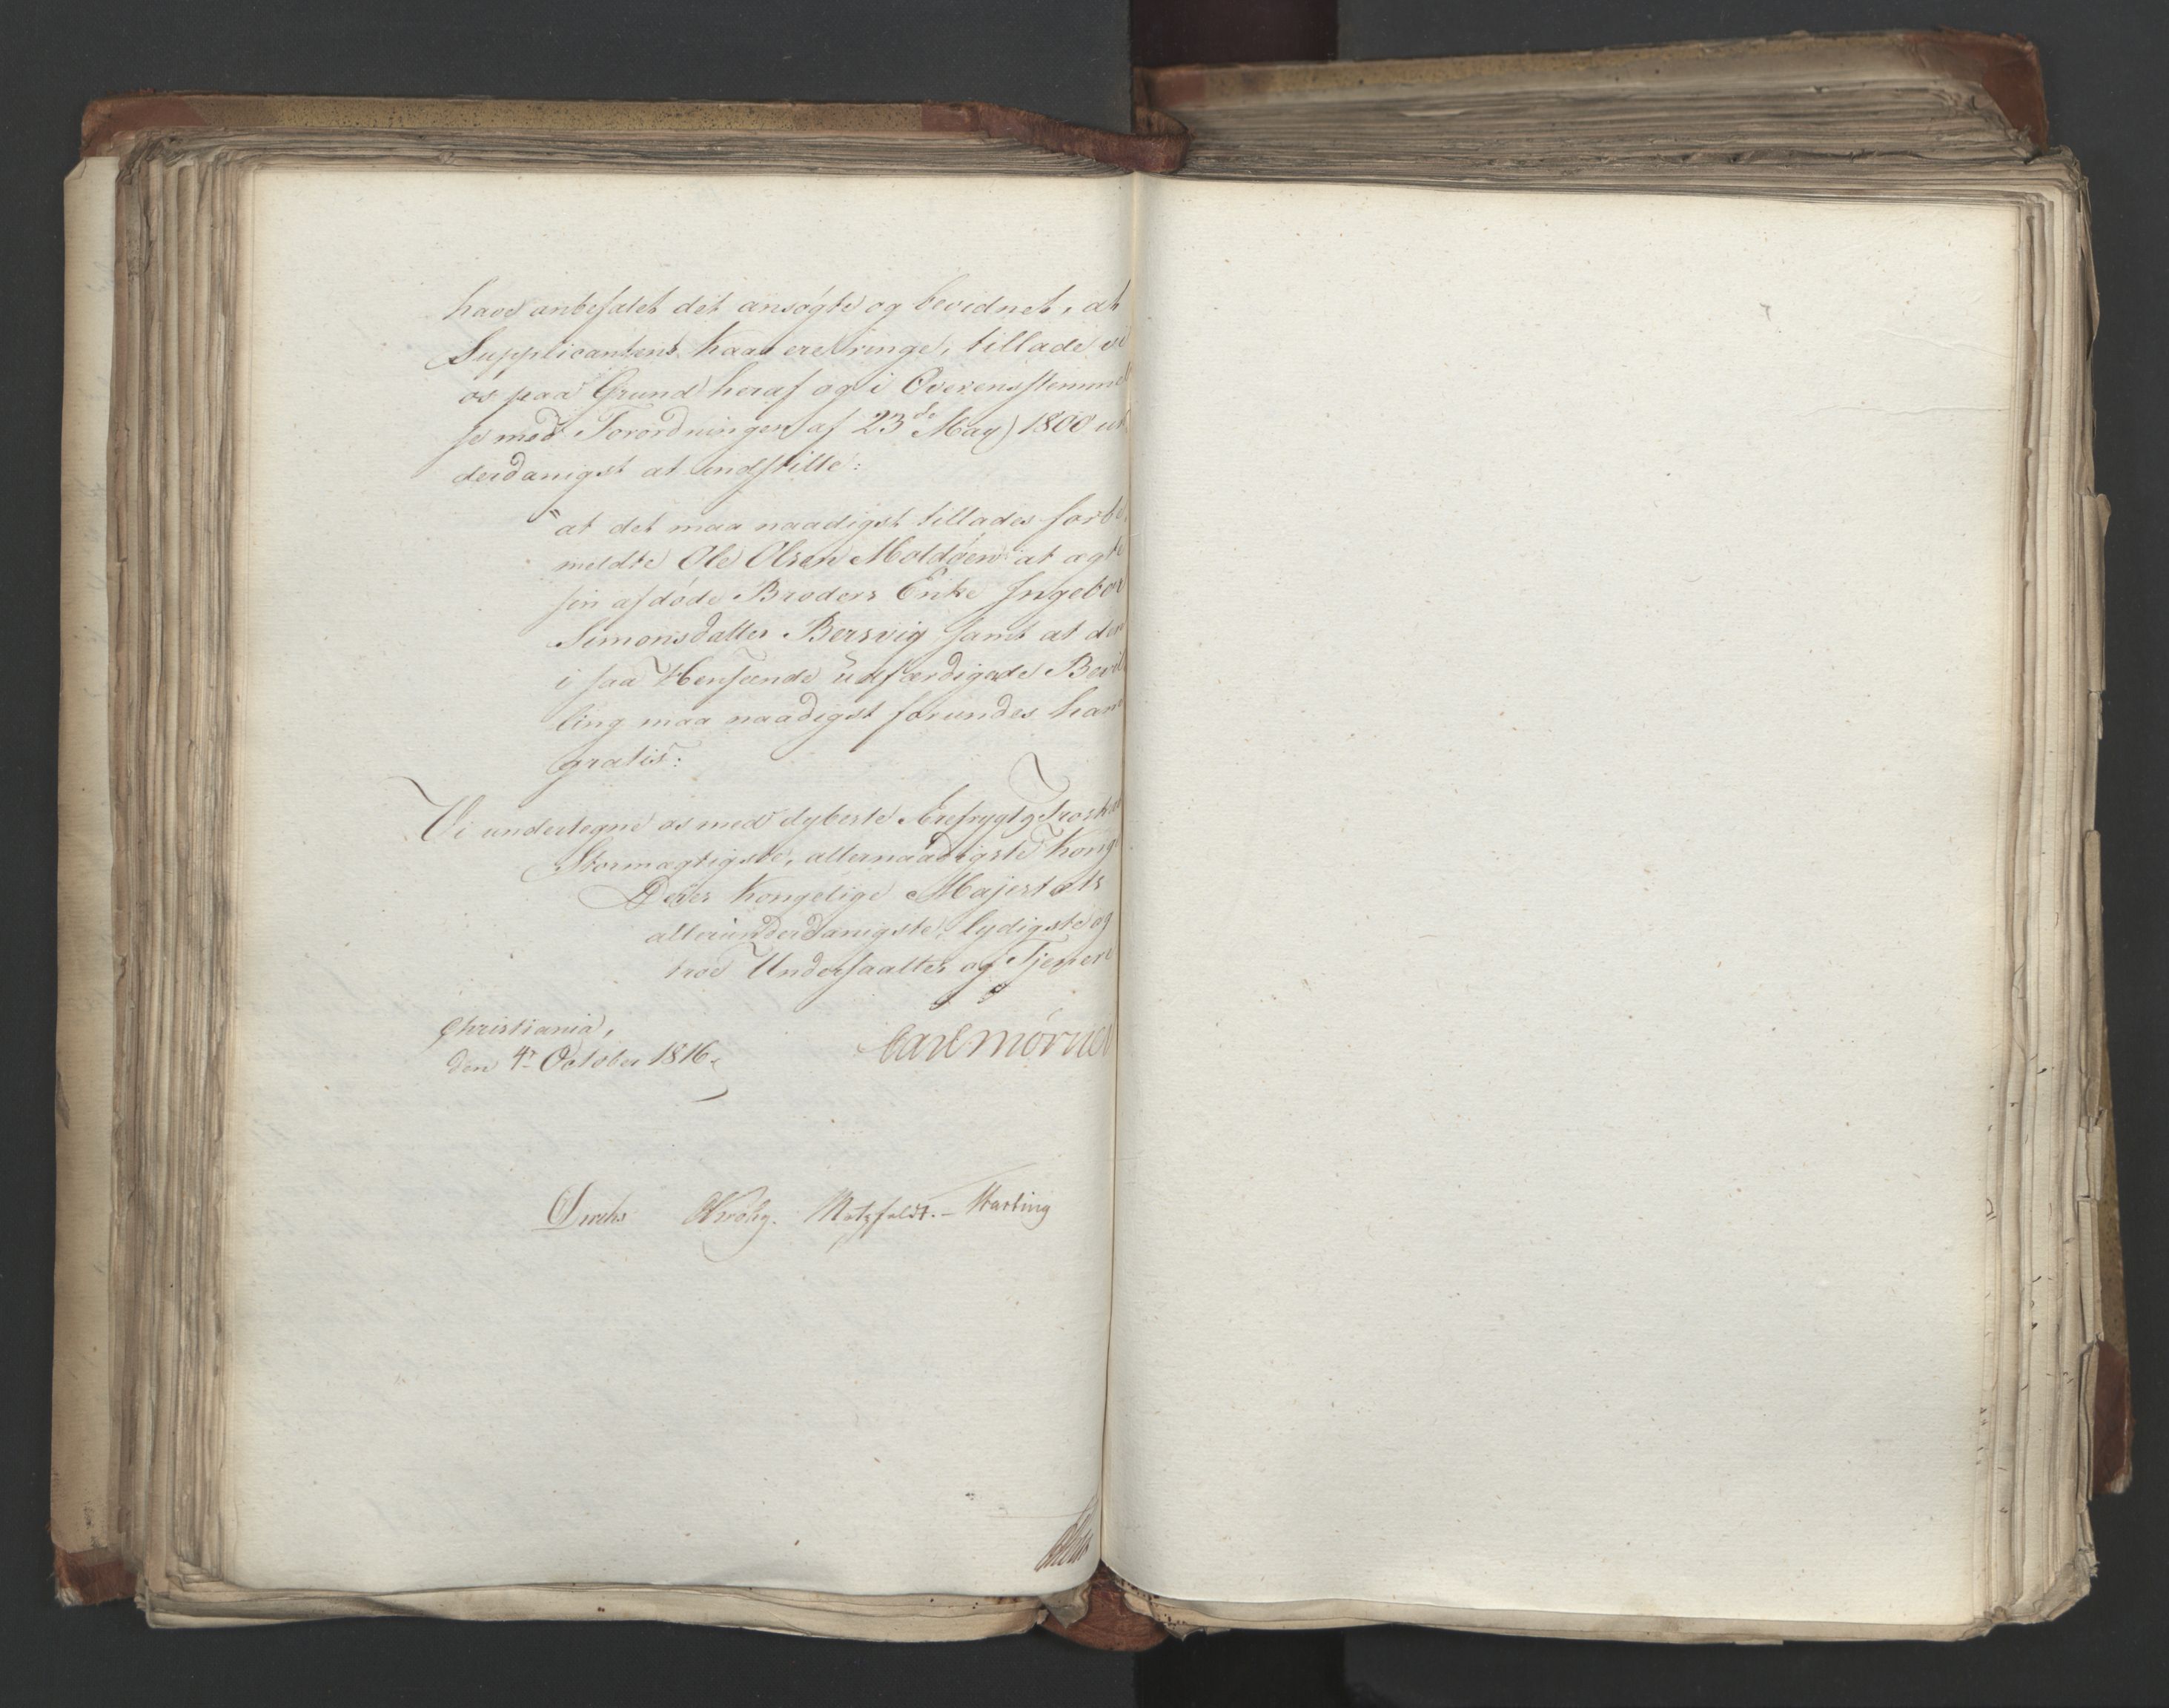 have anbefalet det ansøgte og bevidnet, at
Supplicantens Kaar ere ringe, tillade vi
os paa Grund heraf og i Overensstemmel
se med Forordningen af 23de May 1800 un
derdanigst at indstille:
"at det maa naadigst tillades forbe
meldte Ole Olsen Moldøen at ægte
sin afdøde Broders Enke Ingebor
Simonsdatter Bersvig samt at den
i saa Henseende udfærdigede Bevil
ling maa naadigst forundes ham
gratis:
Vi undertegne os med dybeste Ærefrygt og Troskab
Stormægtigste, allernaadigste Konge
Deres Kongelige Majestæts
allerunderdanigste, lydigste og
troe Undersaatter og Tjenere
Christiania,
den 4r October 1816.
Carl Mörner
Krohg. Motzfeldt. - Hasting